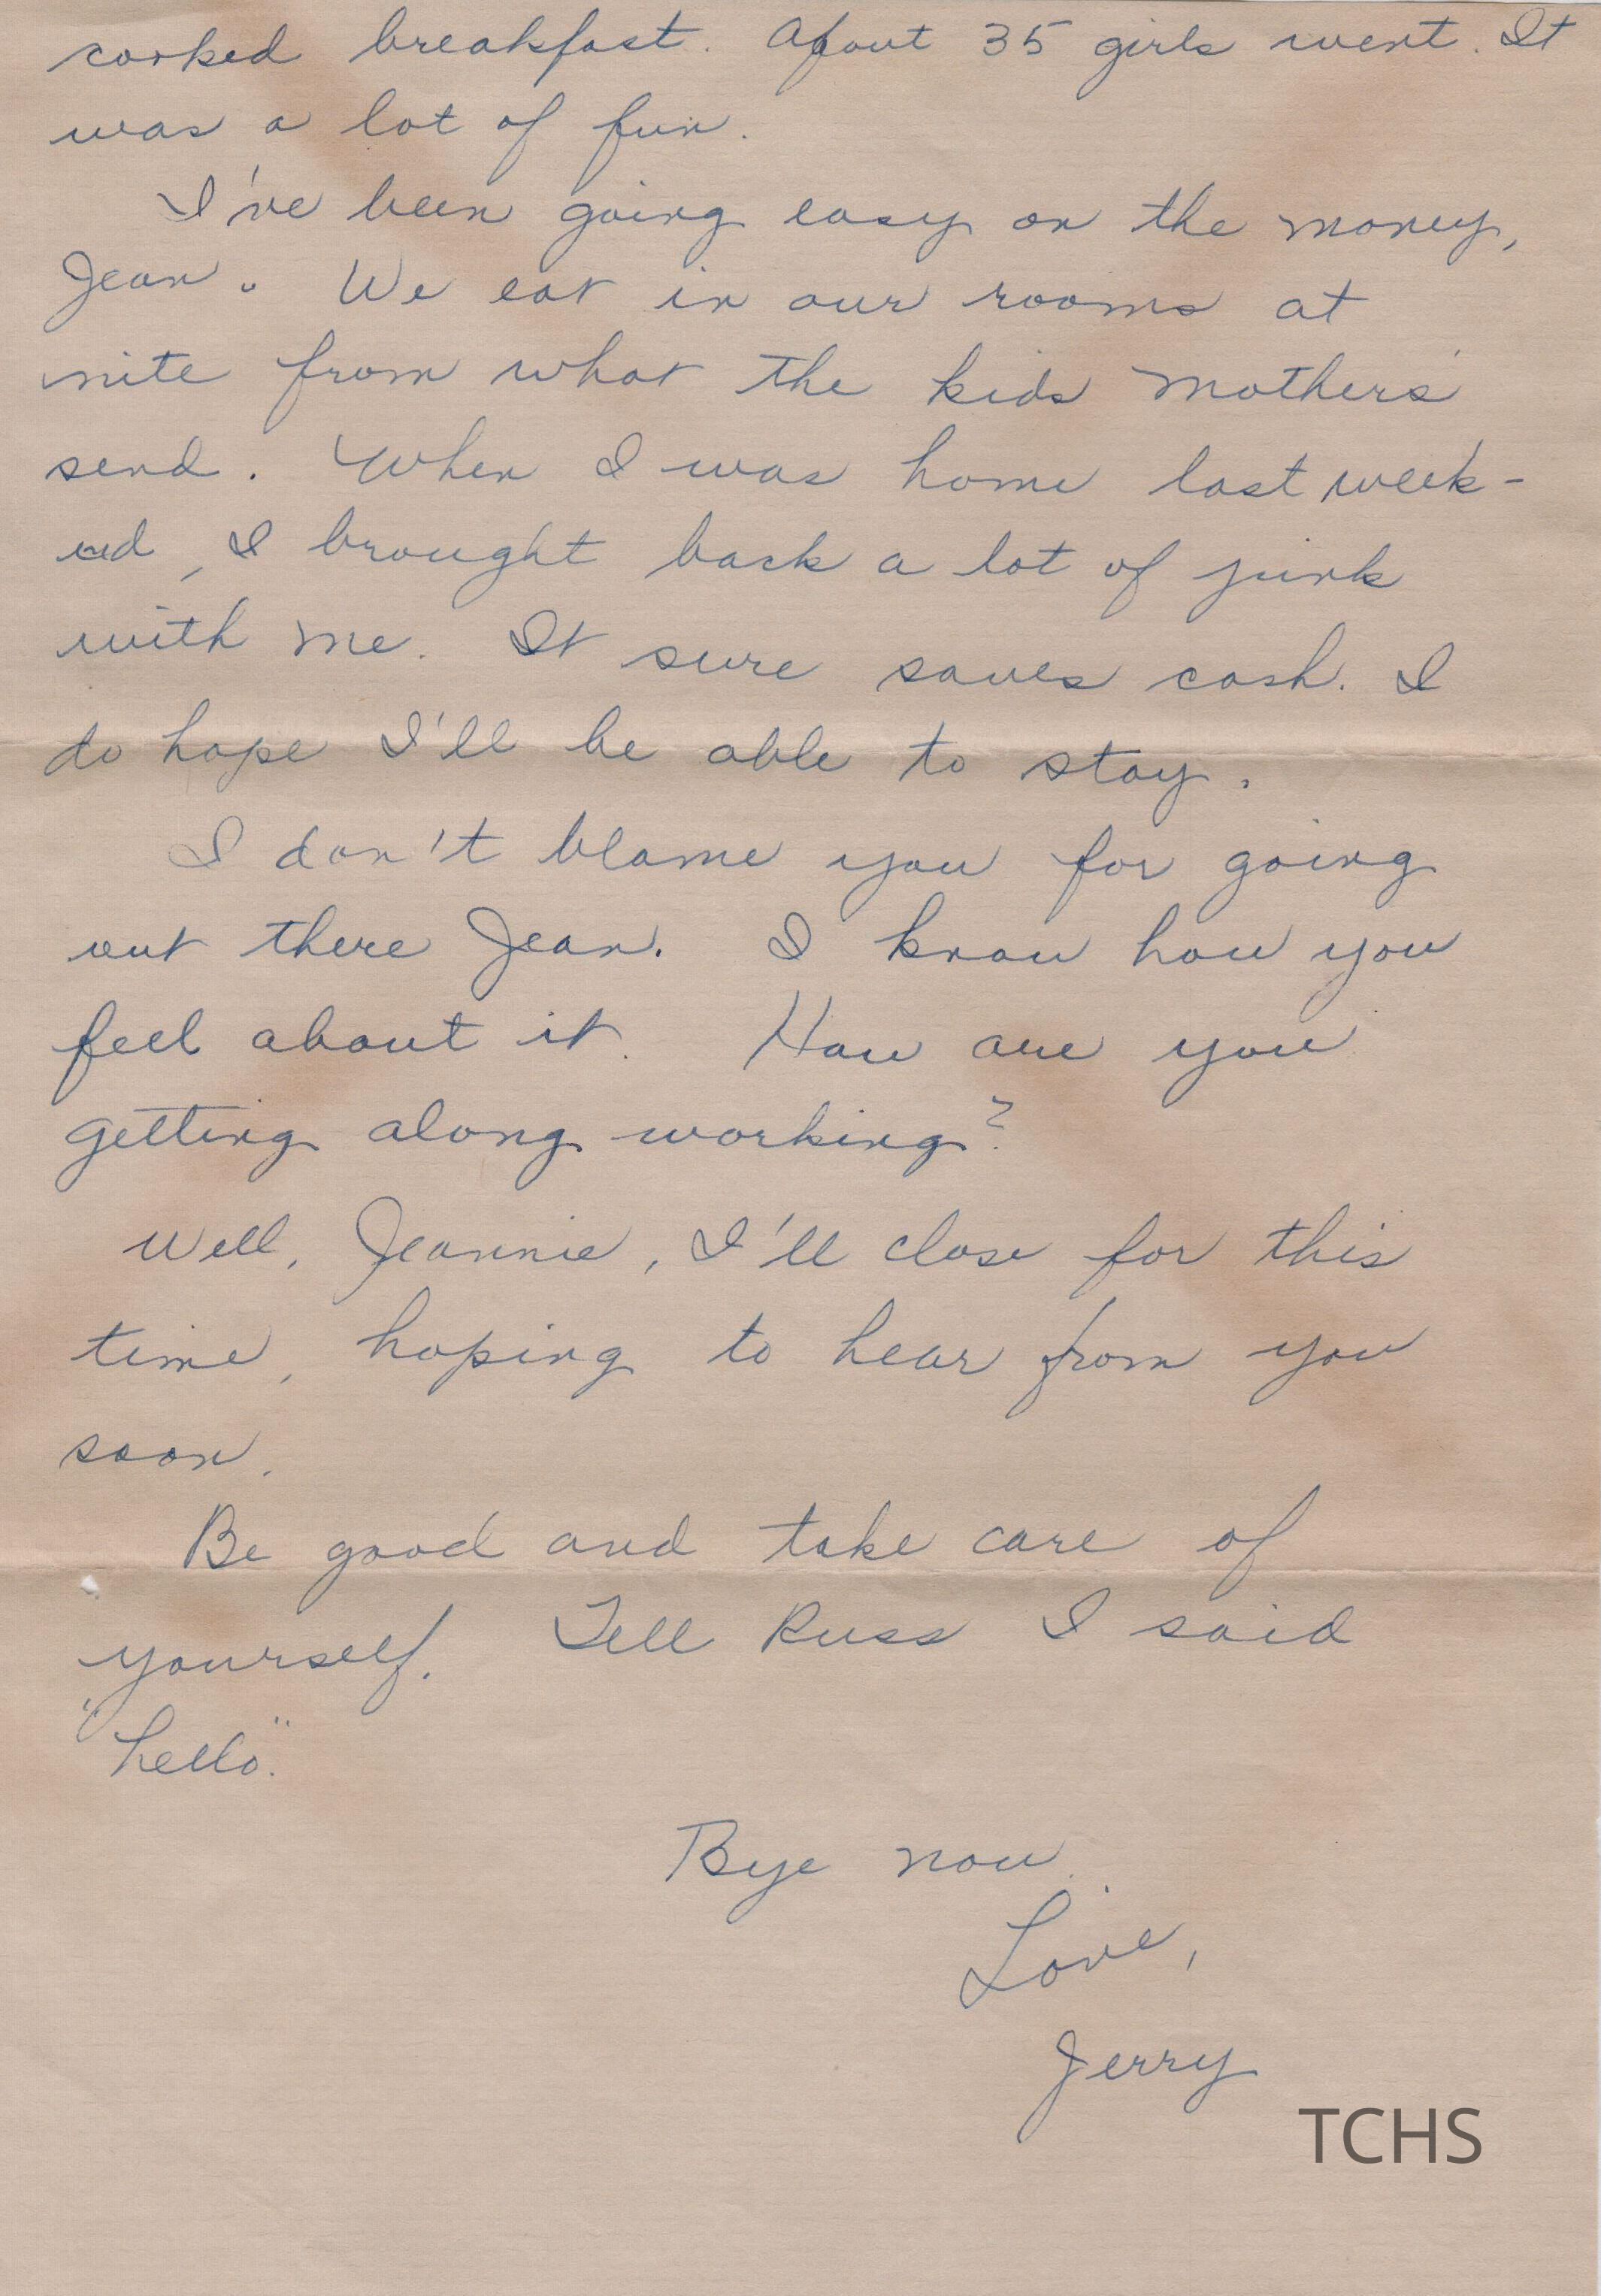 cooked breakfast. About 35 girls went. It
was a lot of fun.
I've been going easy on the money,
Jean. We eat in our rooms at
nite from what the kids mothers
send. When I was home last week-
end, I brought back a lot of junk
with me. It sure saves cash. I
do hope I'll be able to stay.
I don't blame you for going
out there Jean. I know how you
feel about it. How are you
getting along working?
Well, Jeannie, I'll close for this
time, hoping to hear from you
soon.
Be good and take care of
yourself. Tell Russ I said
"hello".
Bye now.
Love,
Jerry
TCHS